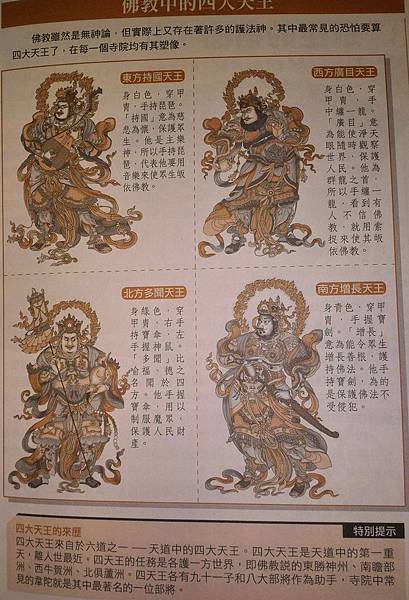 佛教中的四大天王
佛教雖然是無神論,但實際上又存在著許多的護法神。其中最常見的恐怕要算
四大天王了,在每一個寺院均有其塑像。
東方持國天王
身白色,穿甲
冑,手持琵琶。
「持國」意為慈
悲為懷,保護眾
生。他是主樂
神,所以手持琵
琶,代表他要用
音樂來使眾生皈
依佛教。
西方廣目天王
身白色,穿
甲冑,手
中纏一龍。
「廣目」意
為能以淨天
眼隨時觀察
世界,保護
人民。他為
群龍之首,
所以手纏一
龍,看到有
人不信佛
教,就用索
捉來使其皈
依佛教。
北方多聞天王
身綠色,穿
甲冑,右手
持寶傘,左
手握神鼠。
「多聞」比
喻福、德之
名聞於四
方。他手握
寶傘,用以
制服魔眾,
保護人民財
產。
南方增長天王
身青色,穿甲
冑,手握寶
劍。「增長」
意為能令眾生
增長善根,護
持佛法。他手
持寶劍,為的
是保護佛法不
受侵犯。
特別提示
四大天王的來歷
四大天王來自於六道之一——天道中的四大天王。四大天王是天道中的第一重
天,離人世最近。四大天王的任務是各護一方世界,即佛教說的東勝神州、南瞻部
洲、西牛賀洲、北俱蘆洲。四大天王各有九十一子和八大部將作為助手,寺院中常
見的韋陀就是其中最著名的一位部將。